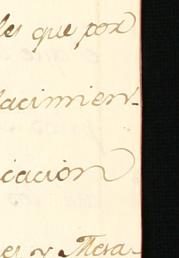 les que por
lacimien-
icacion
es y Mesa-